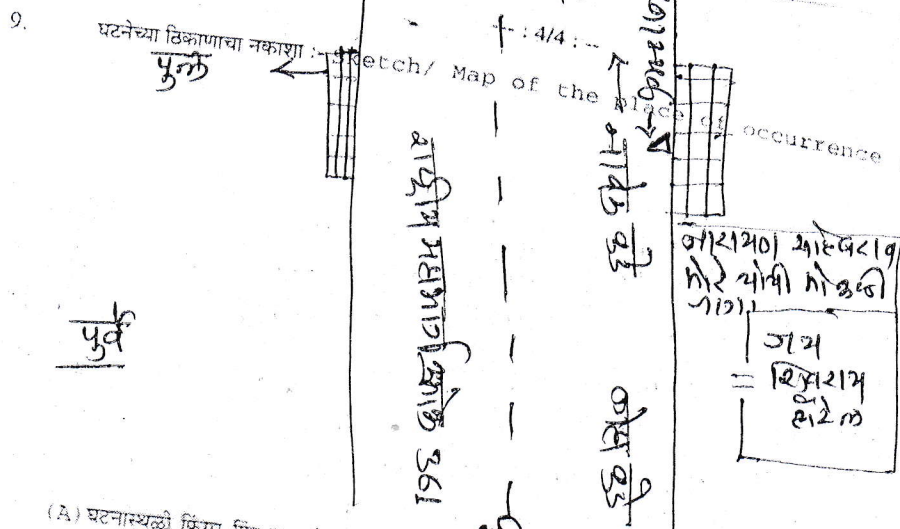 9.
-- : 4/4 : --
घटनेच्या ठिकाणाचा नकाशा :-- Sketch/ Map of the place of occurrence
पुल
राष्ट्रीय महामार्ग क्रमांक 361
नांदेड कडे
पुर्व
नारायण साहेबराव
मोरे यांची मोकळी
जागा
जय
शिवराय
हॉटेल
कडे
(A) घटनास्थळी